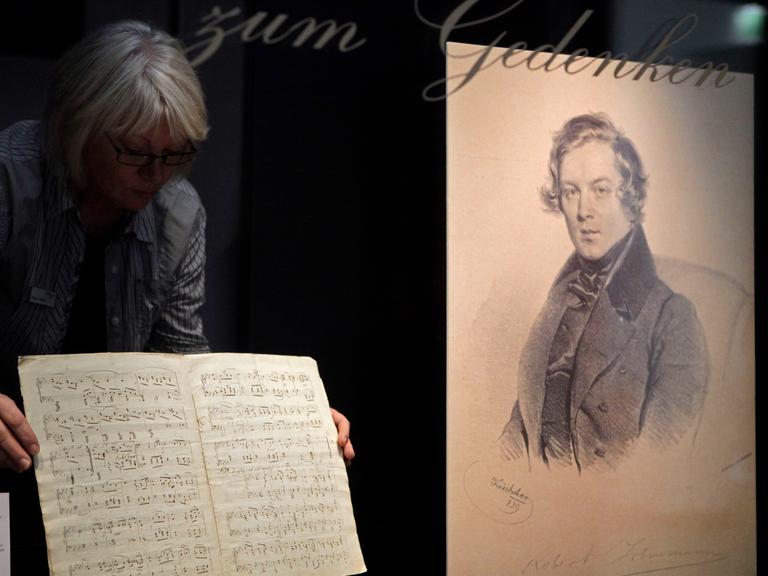 zum Gedenken
Kriehuber
839
Robert Schumann